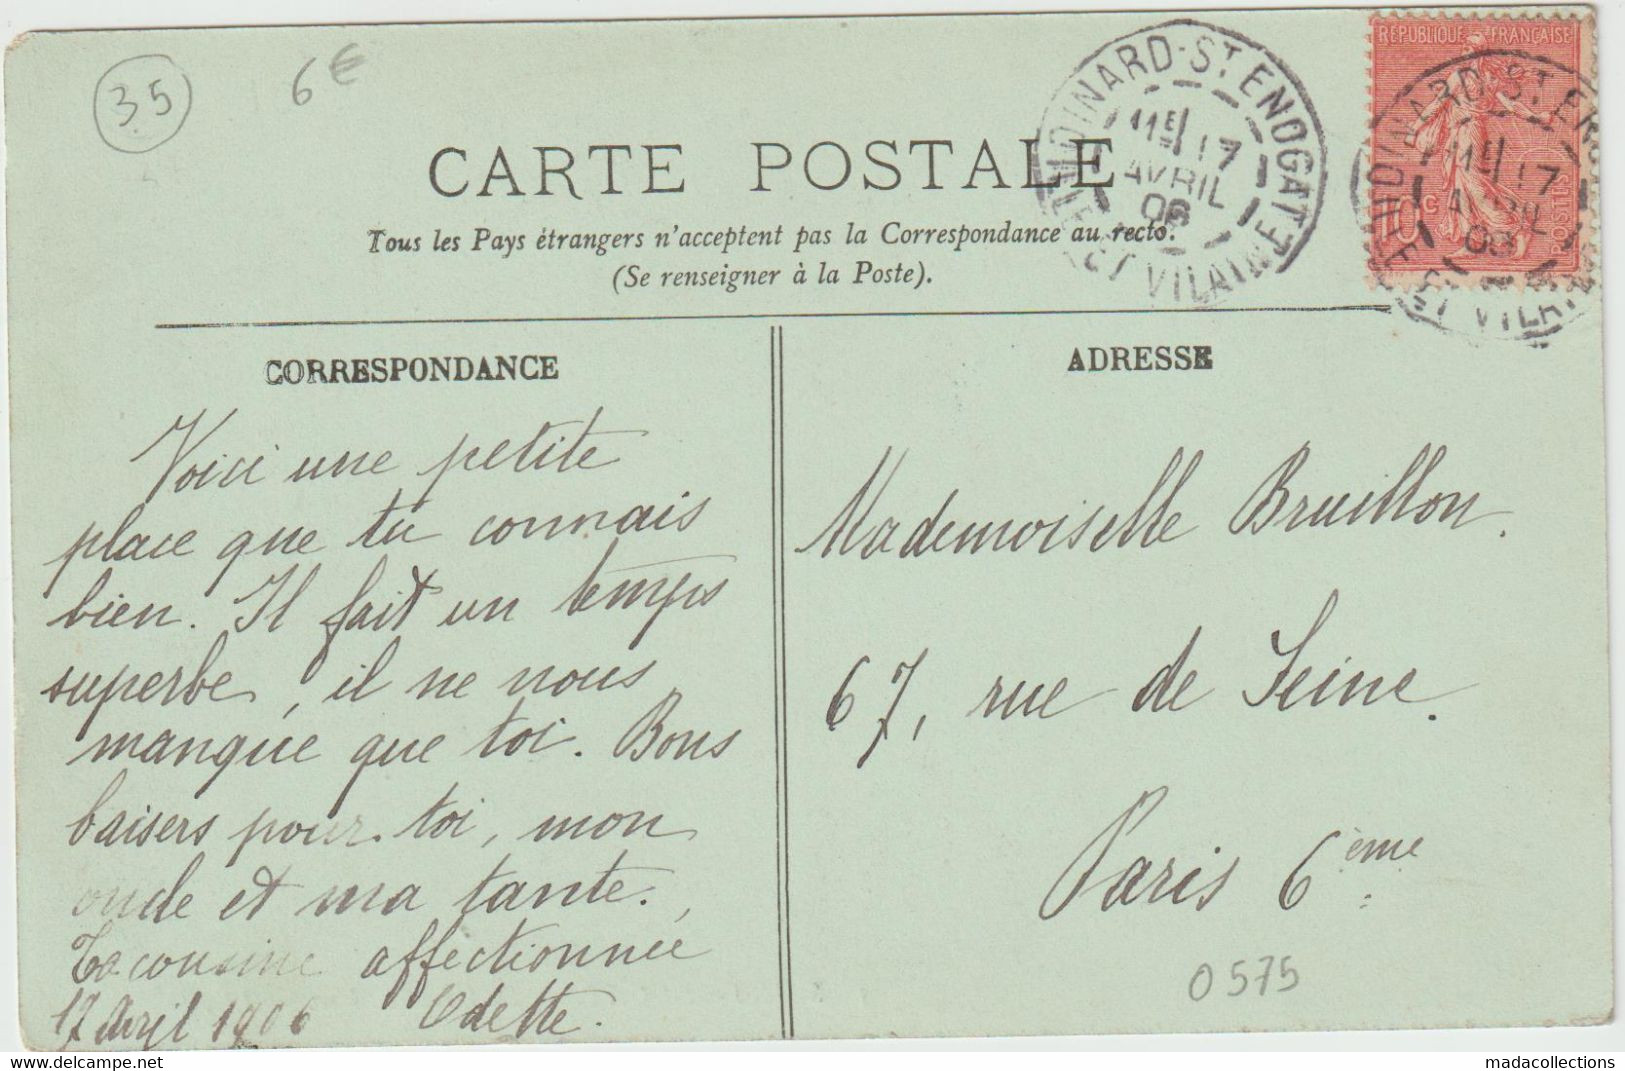 35
6€
CARTE POSTALE
Tous les Pays étrangers n'acceptent pas la Correspondance au recto.
(Se renseigner à la Poste).
DINARD-ST ENOGAT
11E 17
AVRIL
06
ET VILAINE
RÉPUBLIQUE FRANÇAISE
10c
POSTES
DINARD-ST EN
11E 17
AVRIL
06
ET VILAIN
CORRESPONDANCE
Voici une petite
place que tu connais
bien. Il fait un temps
superbe, il ne nous
manque que toi. Bons
baisers pour toi, mon
oncle et ma tante.
Ta cousine affectionnée
17 Avril 1906 Odette.
ADRESSE
Mademoiselle Bruillon.
67, rue de Seine.
Paris 6ème
0575
www.delcampe.net
madacollections